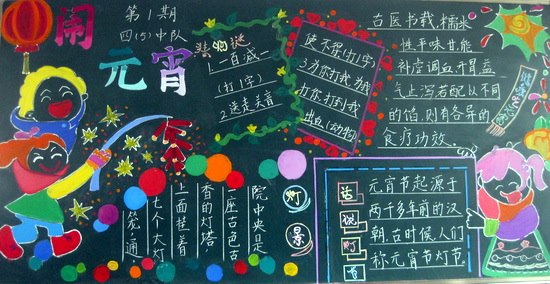 闹元宵
第1期
四(5)中队
猜灯谜
1一百减一
(打1字)
2送走关音
使不得(打1字)
3为你打我,为我
打你,打到我
出血(动物)
古医书载:糯米
性平味甘,能
补虚调血,开胃益
气止泻,若配以不同
的馅,则有各异的
食疗功效。
灯景
院中央是
一座古色古
香的灯塔,
上面挂着
七个大灯
笼,通
话说灯节
元宵节起源于
两千多年前的汉
朝,古时候,人们
称元宵节灯节.